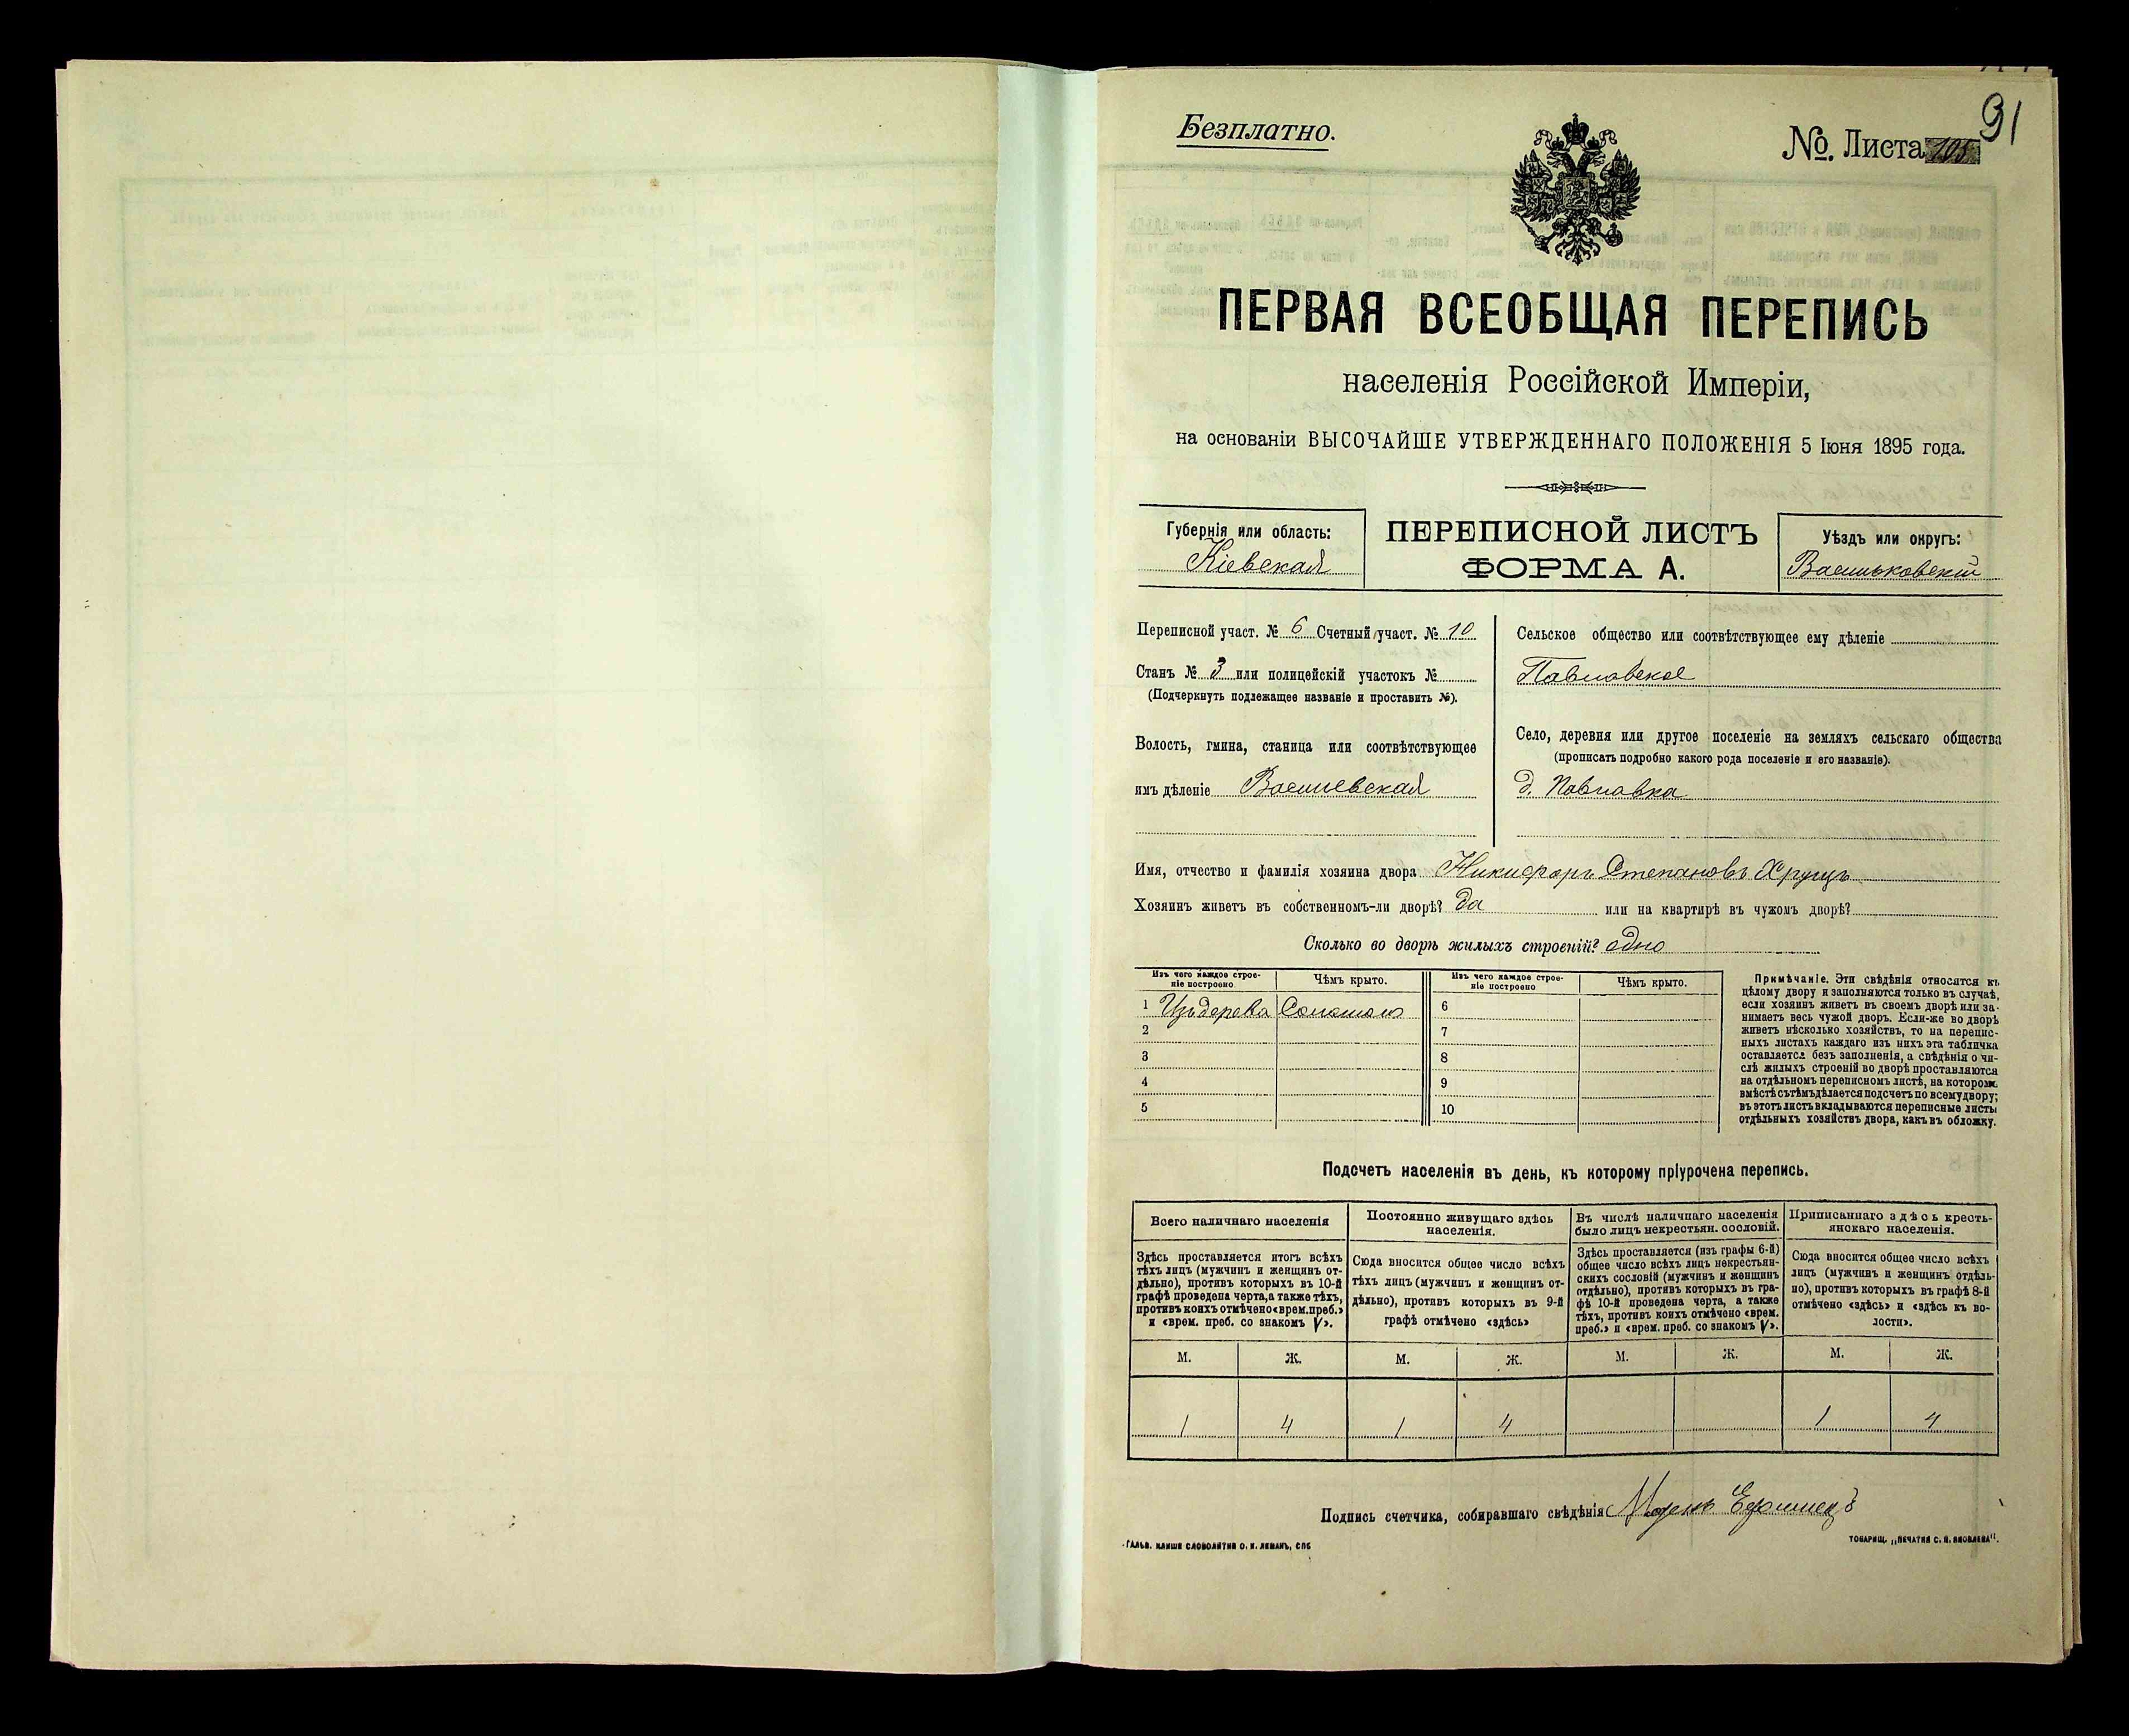 91
Безплатно.
№. Листа 105
ПЕРВАЯ ВСЕОБЩАЯ ПЕРЕПИСЬ
населенія Россійской Имперіи,
на основаніи ВЫСОЧАЙШЕ УТВЕРЖДЕННАГО ПОЛОЖЕНІЯ 5 Іюня 1895 года.
Губернія или область:
Кіевская
ПЕРЕПИСНОЙ ЛИСТЪ
ФОРМА А.
Уѣздъ или округъ:
Васильковскій
Переписной участ. № 6 Счетный участ. № 10
Станъ № 3 или полицейскій участокъ №
(Подчеркнуть подлежащее названіе и проставить №).
Волость, гмина, станица или соотвѣтствующее
имъ дѣленіе Васильевская
Сельское общество или соотвѣтствующее ему дѣленіе
Павловское
Село, деревня или другое поселеніе на земляхъ сельскаго общества
(прописать подробно какого рода поселеніе и его названіе).
д. Павловка
Имя, отчество и фамилія хозяина двора Никифоръ Степановъ Хрущъ
Хозяинъ живетъ въ собственномъ-ли дворѣ? да или на квартирѣ въ чужомъ дворѣ?
Сколько во дворѣ жилыхъ строеній? одно
Изъ чего каждое строе-
ніе построено
Чѣмъ крыто.
Изъ чего каждое строе-
ніе построено
Чѣмъ крыто.
1 Изъ дерева Соломою
2
3
4
5
6
7
8
9
10
Примѣчаніе. Эти свѣдѣнія относятся къ
цѣлому двору и заполняются только въ случаѣ,
если хозяинъ живетъ въ своемъ дворѣ или за-
нимаетъ весь чужой дворъ. Если-же во дворѣ
живетъ нѣсколько хозяйствъ, то на перепис-
ныхъ листахъ каждаго изъ нихъ эта табличка
оставляется безъ заполненія, а свѣдѣнія о чи-
слѣ жилыхъ строеній во дворѣ проставляются
на отдѣльномъ переписномъ листѣ, на которомъ
вмѣстѣ съ тѣмъ дѣлается подсчетъ по всему двору;
въ этотъ листъ вкладываются переписные листы
отдѣльныхъ хозяйствъ двора, какъ въ обложку.
Подсчетъ населенія въ день, къ которому пріурочена перепись.
Всего наличнаго населенія
Здѣсь проставляется итогъ всѣхъ
тѣхъ лицъ (мужчинъ и женщинъ от-
дѣльно), противъ которыхъ въ 10-й
графѣ проведена черта, а также тѣхъ,
противъ коихъ отмѣчено «врем. преб.»
и «врем. преб. со знакомъ V».
Постоянно живущаго здѣсь
населенія.
Сюда вносится общее число всѣхъ
тѣхъ лицъ (мужчинъ и женщинъ от-
дѣльно), противъ которыхъ въ 9-й
графѣ отмѣчено «здѣсь»
Въ числѣ наличнаго населенія
было лицъ некрестьян. сословій.
Здѣсь проставляется (изъ графы 6-й)
общее число всѣхъ лицъ некрестьян-
скихъ сословій (мужчинъ и женщинъ
отдѣльно), противъ которыхъ въ гра-
фѣ 10-й проведена черта, а также
тѣхъ, противъ коихъ отмѣчено «врем.
преб.» и «врем. преб. со знакомъ V».
Приписаннаго здѣсь кресть-
янскаго населенія.
Сюда вносится общее число всѣхъ
лицъ (мужчинъ и женщинъ отдѣль-
но), противъ которыхъ въ графѣ 8-й
отмѣчено «здѣсь» и «здѣсь къ во-
лости».
М. Ж. М. Ж. М. Ж. М. Ж.
1 4 1 4 1 4
Подпись счетчика, собиравшаго свѣдѣнія
ГАЛЬВ. КЛИШЕ СЛОВОЛИТНИ О. И. ЛЕМАНЪ, СПБ
ТОВАРИЩ. „ПЕЧАТНЯ С. П. ЯКОВЛЕВА“.